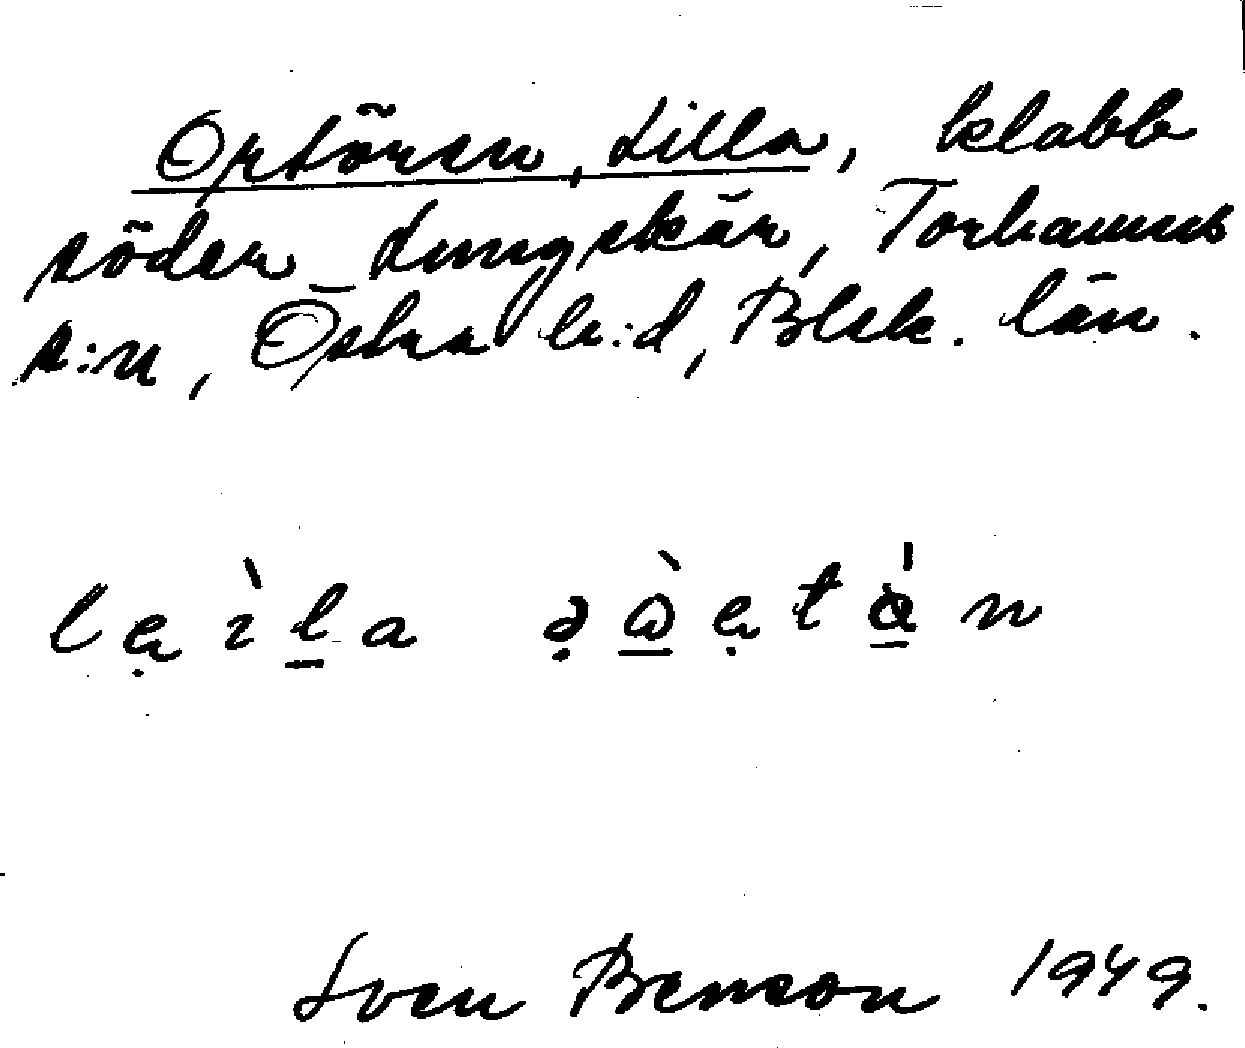 Ortören, Lilla, klabb
söder Lungskär, Torhamns
s:n, Östra h:d, Blek. län.
Sven Benson 1949.